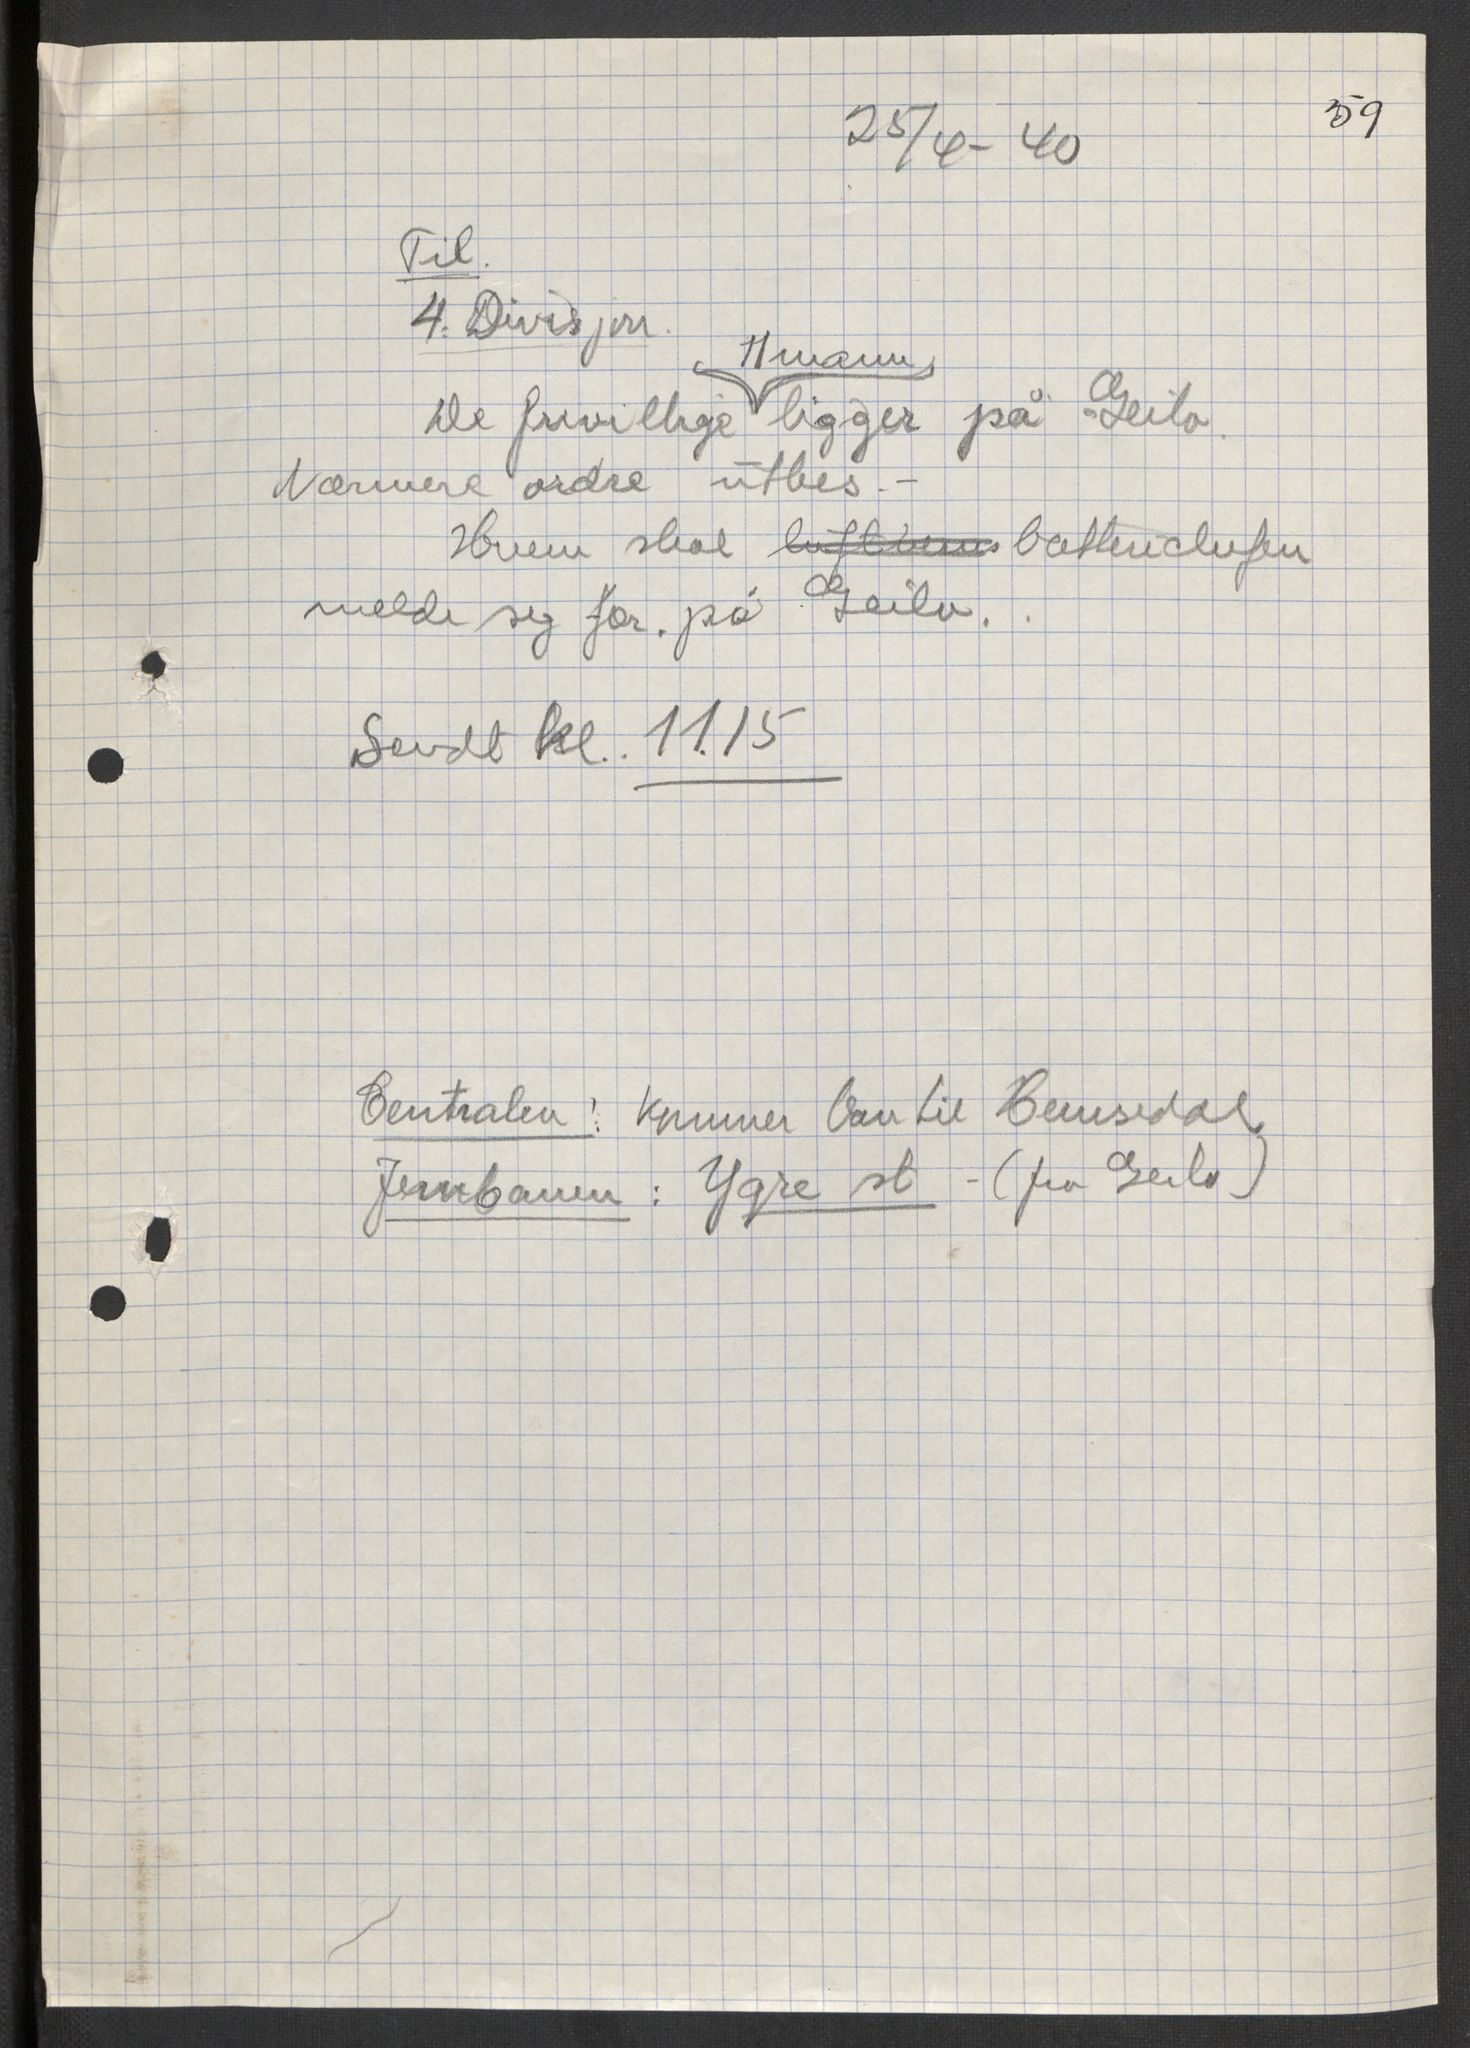 59
25/4-40
Til.
4. Divisjon.
11 mann
De frivillige ligger på Geilo.
Nærmere ordre utbes.-
Hvem skal luftverns batterichefen
melde seg for. på Geilo.
Sendt kl. 11.15
Centralen: kommer ban til Hemsedal.
Jernbanen: Ygre st - (fra Geilo)